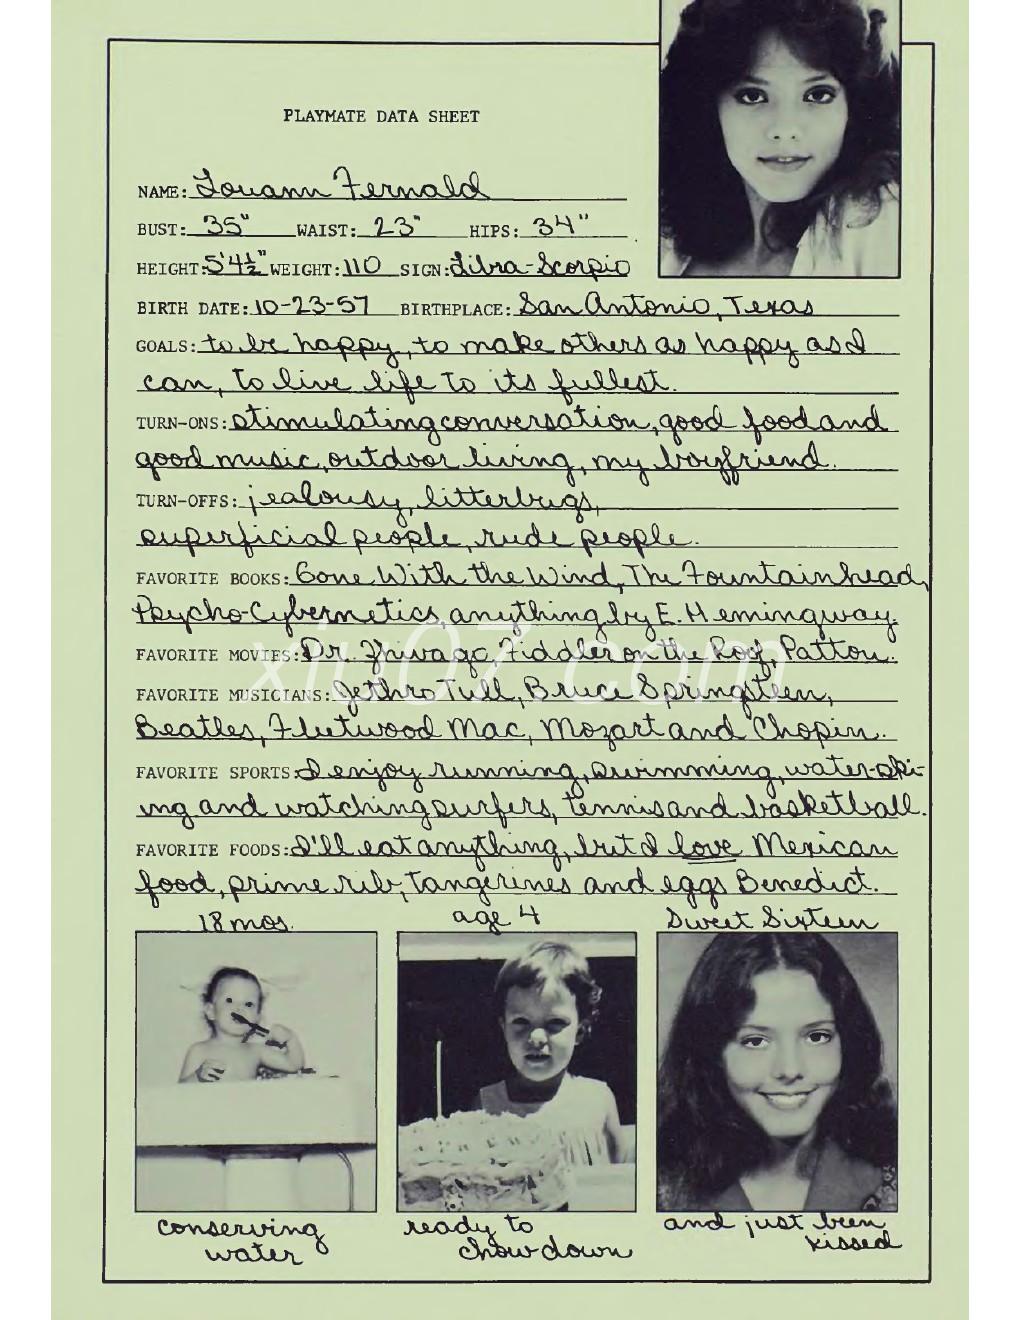 PLAYMATE DATA SHEET
NAME: Louann Fernald
BUST: 35" WAIST: 23" HIPS: 34"
HEIGHT: 5'4½" WEIGHT: 110 SIGN: Libra-Scorpio
BIRTH DATE: 10-23-57 BIRTHPLACE: San Antonio, Texas
GOALS: to be happy, to make others as happy as I
can, to live life to its fullest.
TURN-ONS: stimulating conversation, good food and
good music, outdoor living, my boyfriend.
TURN-OFFS: jealousy, litterbugs,
superficial people, rude people.
FAVORITE BOOKS: Gone With the Wind, The Fountainhead,
Psycho-Cybernetics, anything by E. Hemingway.
FAVORITE MOVIES: Dr. Zhivago, Fiddler on the Roof, Patton.
xiu07.com
FAVORITE MUSICIANS: Jethro Tull, Bruce Springsteen,
Beatles, Fleetwood Mac, Mozart and Chopin.
FAVORITE SPORTS: I enjoy running, swimming, water-ski-
ing and watching surfers, tennis and basketball.
FAVORITE FOODS: I'll eat anything, but I love Mexican
food, prime rib, tangerines and eggs Benedict.
18 mos. age 4 Sweet Sixteen
conserving ready to and just been
water chow down kissed